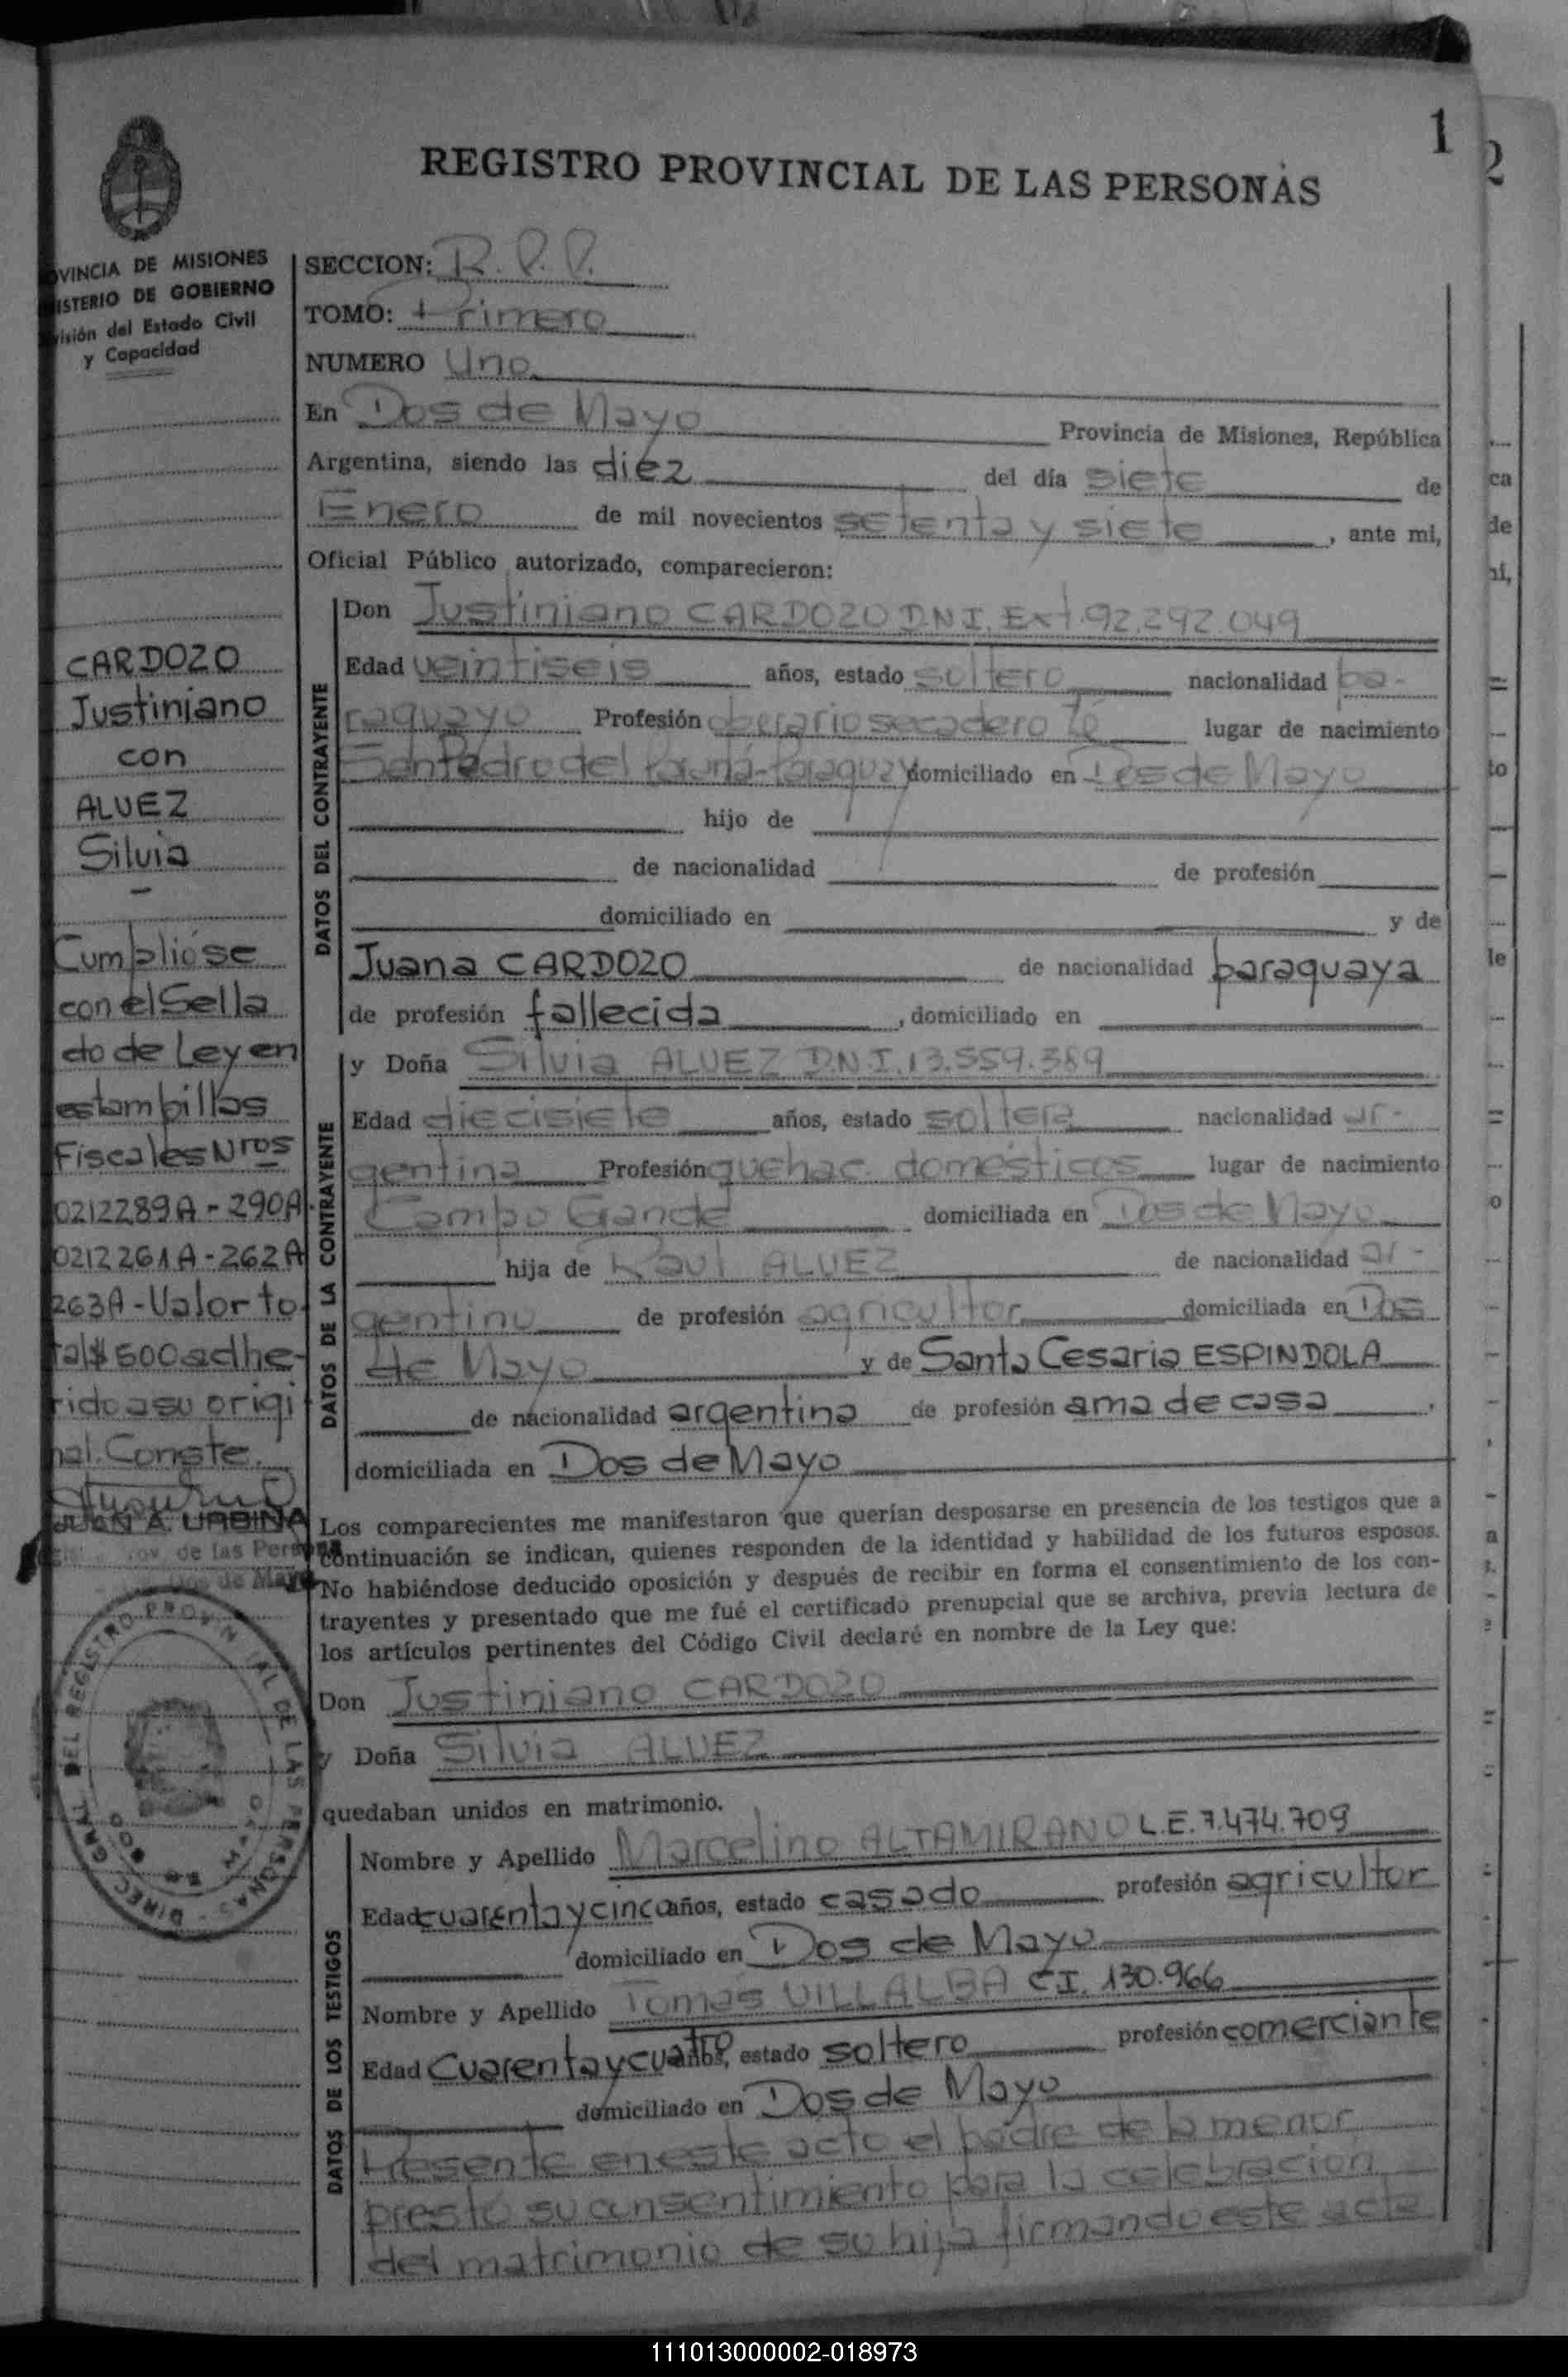 1
2
REGISTRO PROVINCIAL DE LAS PERSONAS
VINCIA DE MISIONES
ISTERIO DE GOBIERNO
visión del Estado Civil
y Capacidad
SECCION: R. P. P.
TOMO: Primero
NUMERO Uno
En Dos de Mayo Provincia de Misiones, República
Argentina, siendo las diez del día siete de
Enero de mil novecientos setenta y siete, ante mi,
Oficial Público autorizado, comparecieron:
CARDOZO
Justiniano
con
ALVEZ
Silvia
Cumplióse
con el Sella
do de Ley en
estampillas
Fiscales Nros
0212289A - 290A
0212261A - 262A
263A - Valor to-
tal $ 500 adhe-
rido a su origi
nal. Conste.
JUAN A. URBINA
de las Perso
Dos de Mayo
DATOS DEL CONTRAYENTE
Don Justiniano CARDOZO D.N.I. Ext. 92.292.049
Edad veintiseis años, estado soltero nacionalidad pa-
raguayo Profesión oberario secadero Té lugar de nacimiento
San Pedro del Paraná-Paraguay domiciliado en Dos de Mayo
hijo de
de nacionalidad de profesión
domiciliado en y de
Juana CARDOZO de nacionalidad paraguaya
de profesión fallecida, domiciliado en
DATOS DE LA CONTRAYENTE
y Doña Silvia ALVEZ D.N.I. 13.559.389
Edad diecisiete años, estado soltera nacionalidad ar-
gentina Profesión quehac. domésticos lugar de nacimiento
Campo Grande domiciliada en Dos de Mayo
hija de Raul ALVEZ de nacionalidad ar-
gentino de profesión agricultor domiciliada en Dos
de Mayo y de Santa Cesaria ESPINDOLA
de nacionalidad argentina de profesión ama de casa,
domiciliada en Dos de Mayo
Los comparecientes me manifestaron que querían desposarse en presencia de los testigos que a
continuación se indican, quienes responden de la identidad y habilidad de los futuros esposos.
No habiéndose deducido oposición y después de recibir en forma el consentimiento de los con-
trayentes y presentado que me fué el certificado prenupcial que se archiva, previa lectura de
los artículos pertinentes del Código Civil declaré en nombre de la Ley que:
Don Justiniano CARDOZO
y Doña Silvia ALVEZ
quedaban unidos en matrimonio.
DIREC. GRAL. DEL REGISTRO PROVINCIAL DE LAS PERSONAS
DATOS DE LOS TESTIGOS
Nombre y Apellido Marcelino ALTAMIRANO L.E. 7.474.709
Edad cuarenta y cinco años, estado casado profesión agricultor
domiciliado en Dos de Mayo
Nombre y Apellido Tomás VILLALBA C.I. 130.966
Edad Cuarenta y cuatro años, estado soltero profesión comerciante
domiciliado en Dos de Mayo
Presente en este acto el padre de la menor
prestó su consentimiento para la celebración
del matrimonio de su hija firmando este acta
111013000002-018973